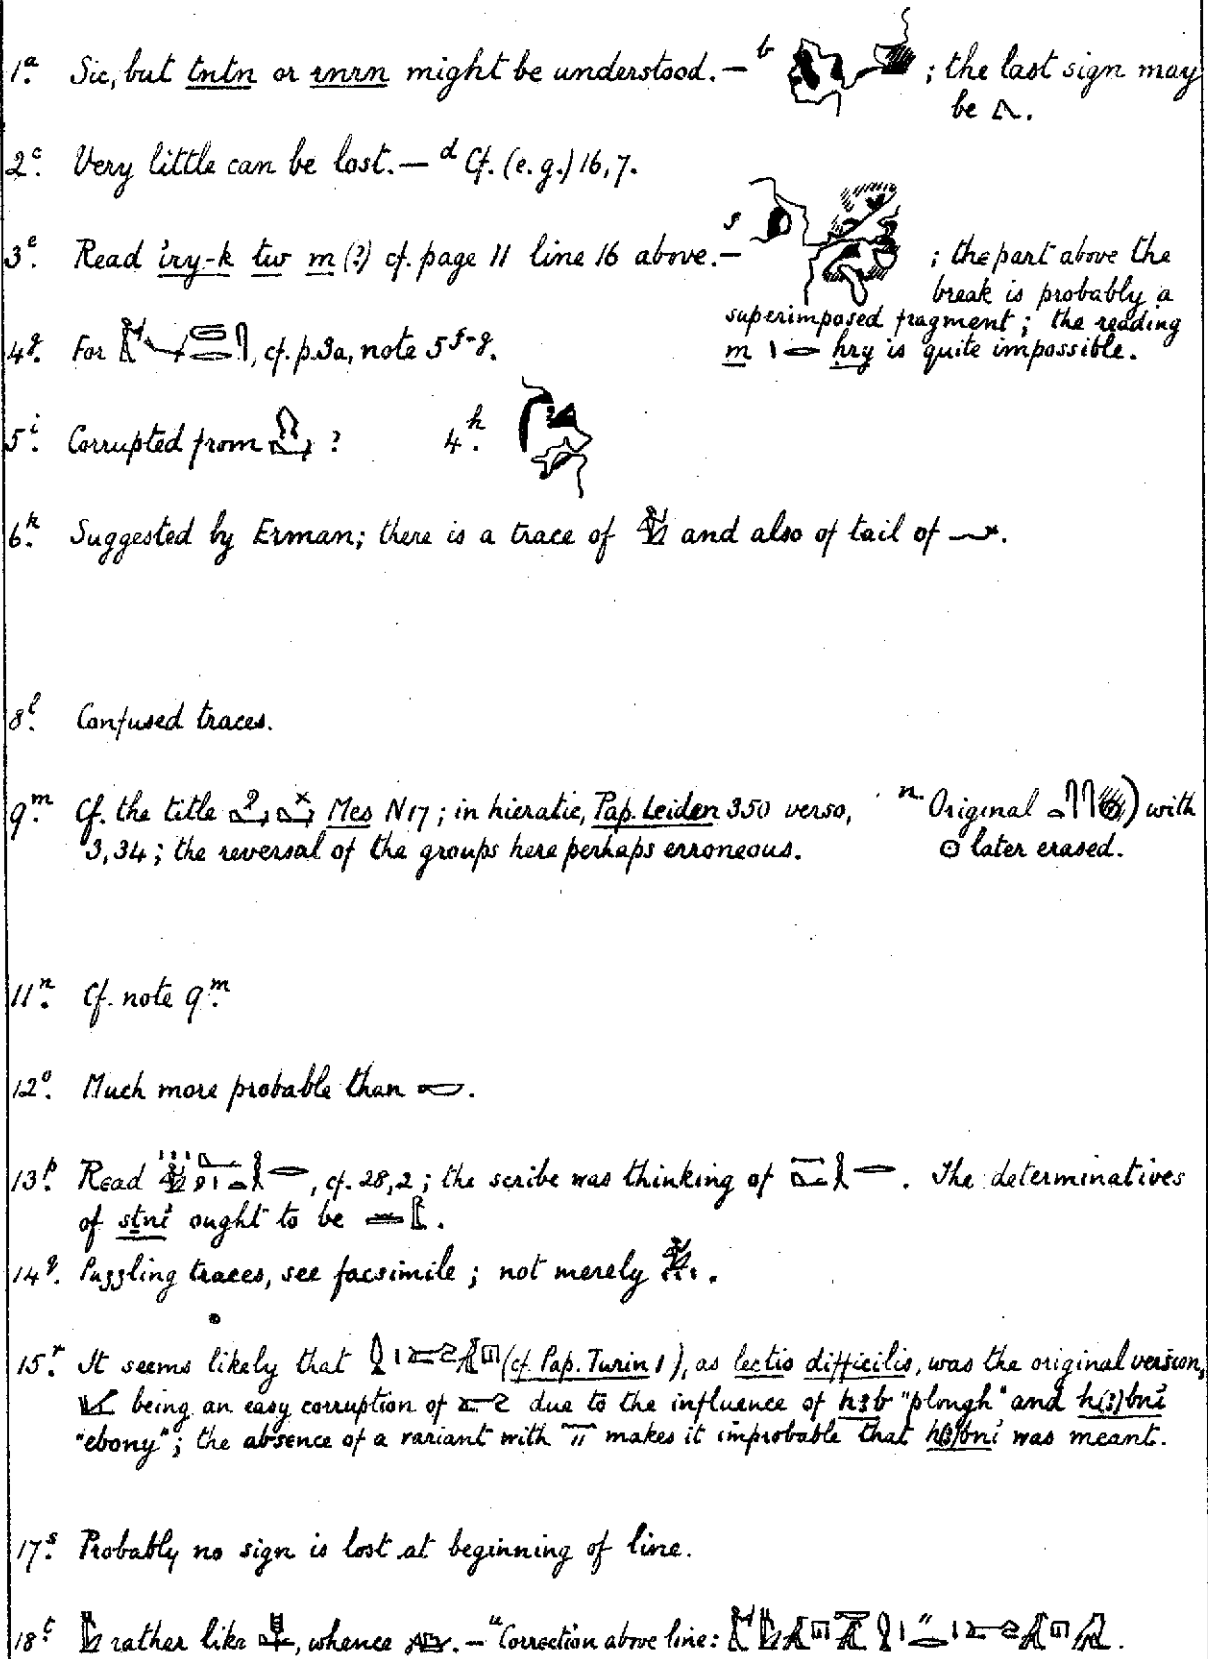 1.a Sic, but tntn or rnrn might be understood. — b ; the last sign may
be 𓈎.
2.c Very little can be lost. — d Cf. (e.g.) 16, 7.
3.e Read iry-k tw m (?) cf. page 11 line 16 above. — f ; the part above the
break is probably a
superimposed fragment; the reading
m hry is quite impossible.
4.g For , cf. p. 3a, note 5 f-g.
5.i Corrupted from ? 4.h
6.k Suggested by Erman; there is a trace of and also of tail of 𓆑.
8.l Confused traces.
9.m Cf. the title Mes N17; in hieratic, Pap. Leiden 350 verso,
3,34; the reversal of the groups here perhaps erroneous.
n. Original with
☉ later erased.
11.n Cf. note 9.m
12.o Much more probable than .
13.p Read , cf. 28,2; the scribe was thinking of . The determinatives
of sṯni ought to be .
14.q Puzzling traces, see facsimile; not merely .
15.r It seems likely that (cf. Pap. Turin 1), as lectio difficilis, was the original version,
being an easy corruption of due to the influence of hꜣb "plough" and h(ꜣ)bni
"ebony"; the absence of a variant with makes it improbable that h(ꜣ)bni was meant.
17.s Probably no sign is lost at beginning of line.
18.t rather like , whence . — u Correction above line: .